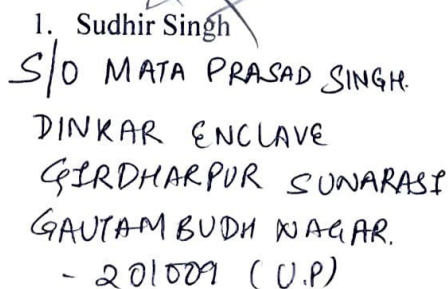 1. Sudhir Singh
S/O MATA PRASAD SINGH.
DINKAR ENCLAVE
GIRDHARPUR SUNARASI
GAUTAM BUDH NAGAR.
- 201009 (U.P)